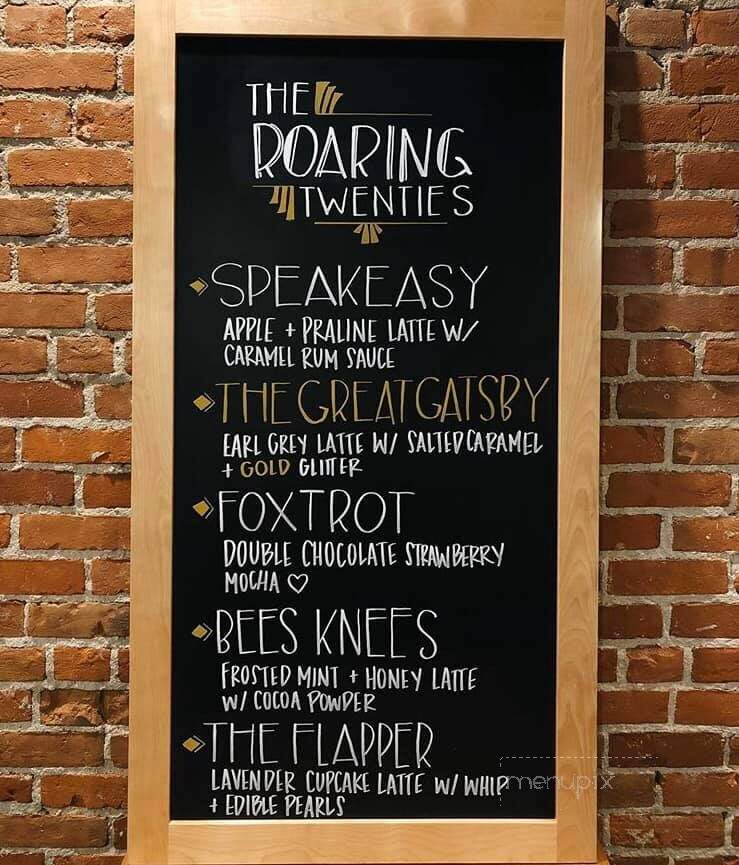 THE
ROARING
TWENTIES
SPEAKEASY
APPLE + PRALINE LATTE W/
CARAMEL RUM SAUCE
THE GREAT GATSBY
EARL GREY LATTE W/ SALTED CARAMEL
+ GOLD GLITTER
FOXTROT
DOUBLE CHOCOLATE STRAWBERRY
MOCHA ♡
BEES KNEES
FROSTED MINT + HONEY LATTE
W/ COCOA POWDER
THE FLAPPER
LAVENDER CUPCAKE LATTE W/ WHIP
+ EDIBLE PEARLS
menupix